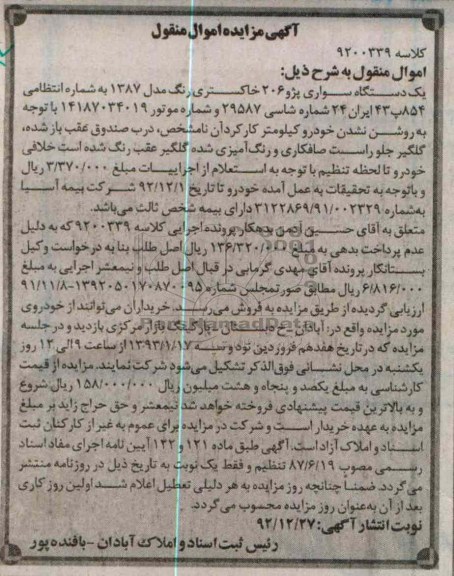 آگهی مزایده اموال منقول
کلاسه ۹۲۰۰۳۳۹
اموال منقول به شرح ذیل:
یک دستگاه سواری پژو ۲۰۶ خاکستری رنگ مدل ۱۳۸۷ به شماره انتظامی
۸۵۴ب۴۳ ایران ۲۴ شماره شاسی ۲۹۵۸۷ و شماره موتور ۱۴۱۸۷۰۳۴۰۱۹ با توجه
به روشن نشدن خودرو کیلومتر کارکرد آن نامشخص، درب صندوق عقب باز شده،
گلگیر جلو راست صافکاری و رنگ آمیزی شده گلگیر عقب رنگ شده است خلافی
خودرو تا لحظه تنظیم با توجه به استعلام از اجراییات مبلغ ۳/۳۷۰/۰۰۰ ریال
و باتوجه به تحقیقات به عمل آمده خودرو تا تاریخ ۹۲/۱۲/۱ شرکت بیمه آسیا
به شماره ۳۱۲۲۸۶۹/۹۱/۰۰۲۳۲۹ دارای بیمه شخص ثالث می‌باشد.
متعلق به آقای حسین بدهکار پرونده اجرایی کلاسه ۹۲۰۰۳۳۹ که به دلیل
عدم پرداخت بدهی به مبلغ ۱۳۶/۳۲۰/۰۰۰ ریال اصل طلب بنا به درخواست وکیل
بستانکار پرونده آقای مهدی گرمابی در قبال اصل طلب و نیمعشر اجرایی به مبلغ
۶/۸۱۶/۰۰۰ ریال مطابق صورتمجلس شماره ۱۳۹۲۰۵۰۱۷۰۸۷۰۰۹۵-۹۱/۱۱/۸
ارزیابی گردیده از طریق مزایده به فروش می‌رسد. خریداران می‌توانند از خودروی
مورد مزایده واقع در: آبادان - خ دبستان - پارکینگ بازار مرکزی بازدید و در جلسه
مزایده که در تاریخ هفدهم فروردین نود و سه ۱۳۹۳/۱/۱۷ از ساعت ۹ الی ۱۲ روز
یکشنبه در محل نشانی فوق‌الذکر تشکیل می‌شود شرکت نمایند. مزایده از قیمت
کارشناسی به مبلغ یکصد و پنجاه و هشت میلیون ریال ۱۵۸/۰۰۰/۰۰۰ ریال شروع
و به بالاترین قیمت پیشنهادی فروخته خواهد شد نیمعشر و حق حراج زاید بر مبلغ
مزایده به عهده خریدار است و شرکت در مزایده برای عموم به غیر از کارکنان ثبت
اسناد و املاک آزاد است. آگهی طبق ماده ۱۲۱ و ۱۲۲ آیین نامه اجرای مفاد اسناد
رسمی مصوب ۸۷/۶/۱۹ تنظیم و فقط یک نوبت به تاریخ ذیل در روزنامه منتشر
می‌گردد. ضمنا چنانچه روز مزایده به هر دلیلی تعطیل اعلام شد اولین روز کاری
بعد از آن به عنوان روز مزایده محسوب می‌گردد.
نوبت انتشار آگهی: ۹۲/۱۲/۲۷
رئیس ثبت اسناد و املاک آبادان - بافنده پور